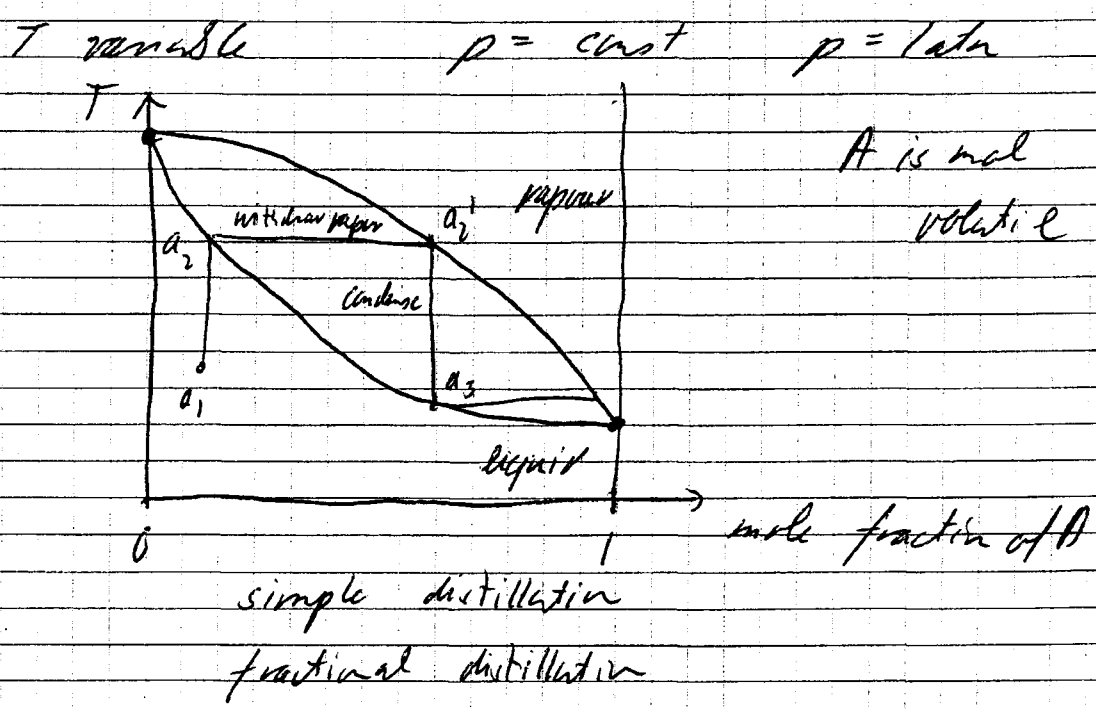 T variable p = const p = 1 atm
T
A is
volatile
vapour
withdraw vapor a₂'
a₂
condense
a₃
a₁
liquid
0 1 mole fraction of A
simple distillation
fractional distillation